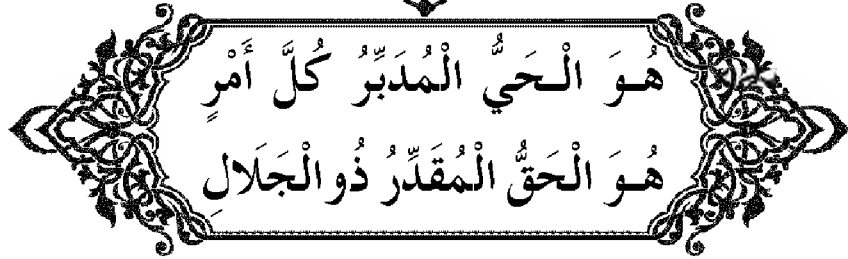 هُوَ الْحَيُّ الْمُدَبِّرُ كُلَّ أَمْرٍ
هُوَ الْحَقُّ الْمُقَدِّرُ ذُو الْجَلَالِ